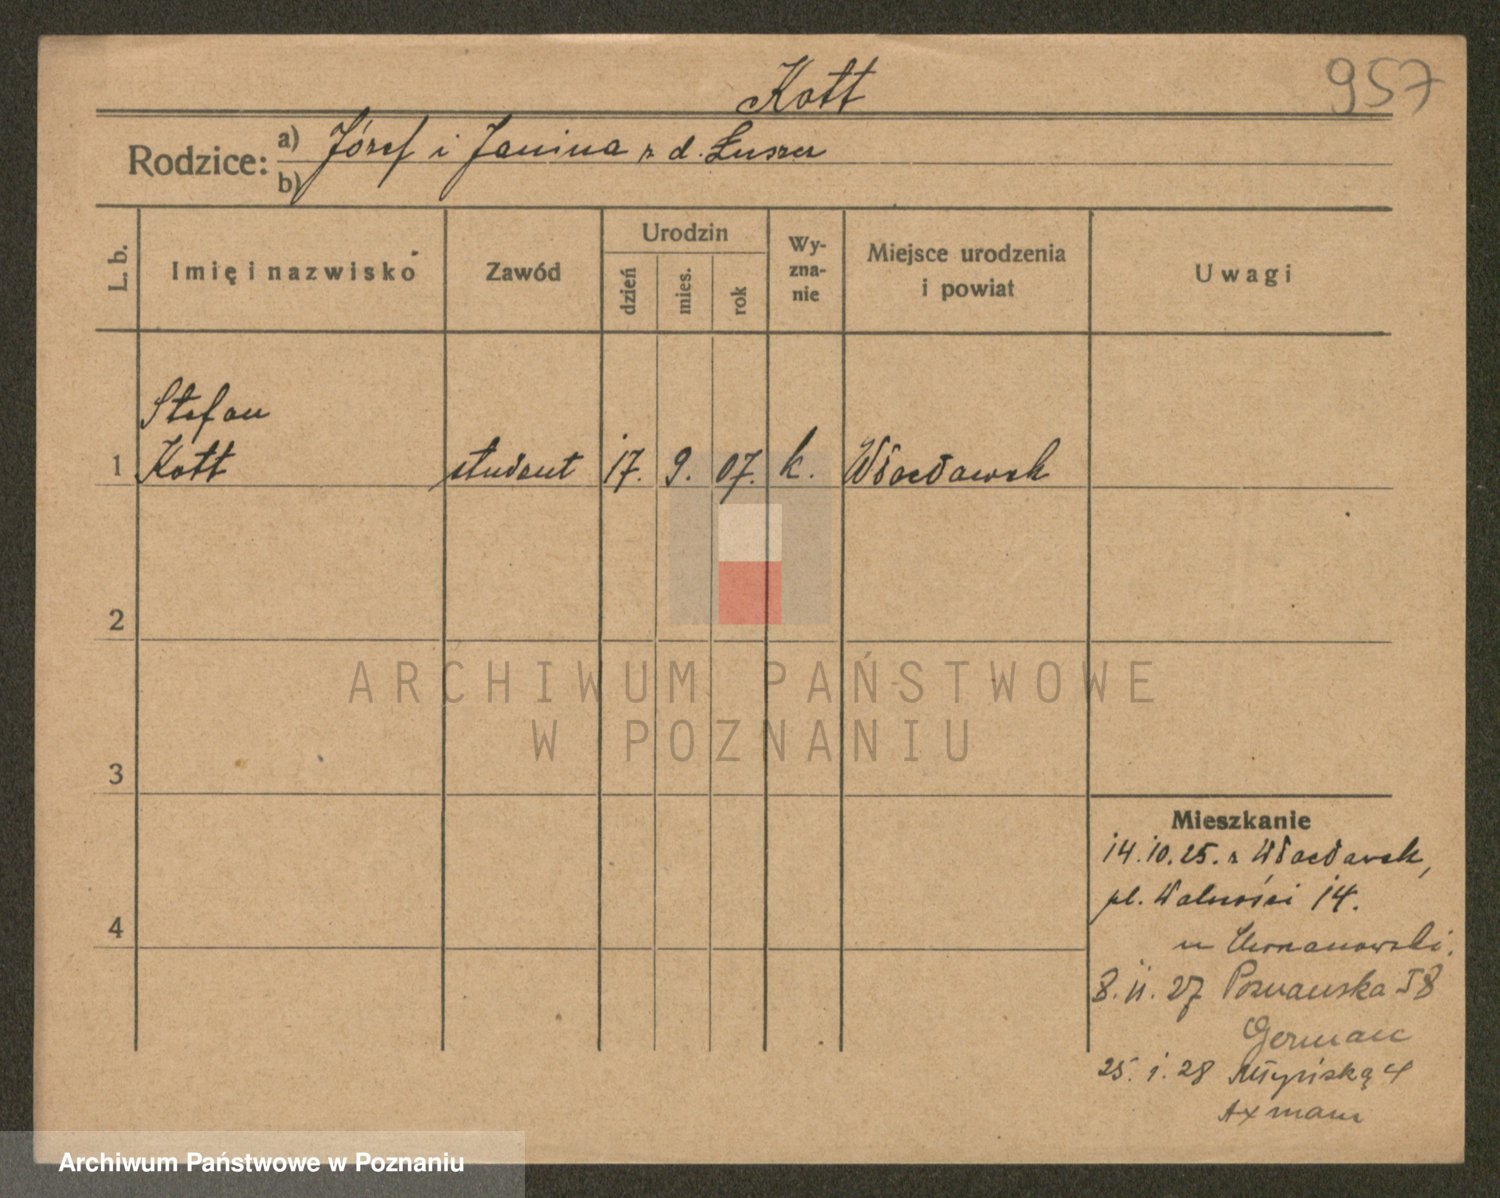 Kott
957
Rodzice: a) Józef i Janina z d. Łuszcz
b)
L. b.
Imię i nazwisko
Zawód
Urodzin
dzień
mies.
rok
Wy-
zna-
nie
Miejsce urodzenia
i powiat
Uwagi
Stefan
1 Kott student 17. 9. 07. k. Włocławek
2
3
4
Mieszkanie
14.10.25. z Włocławek,
pl. Wolności 14.
u
8.11.27 Poznańska 58
German
25.1.28 Młyńską 4
Axmann
ARCHIWUM PAŃSTWOWE
W POZNANIU
Archiwum Państwowe w Poznaniu